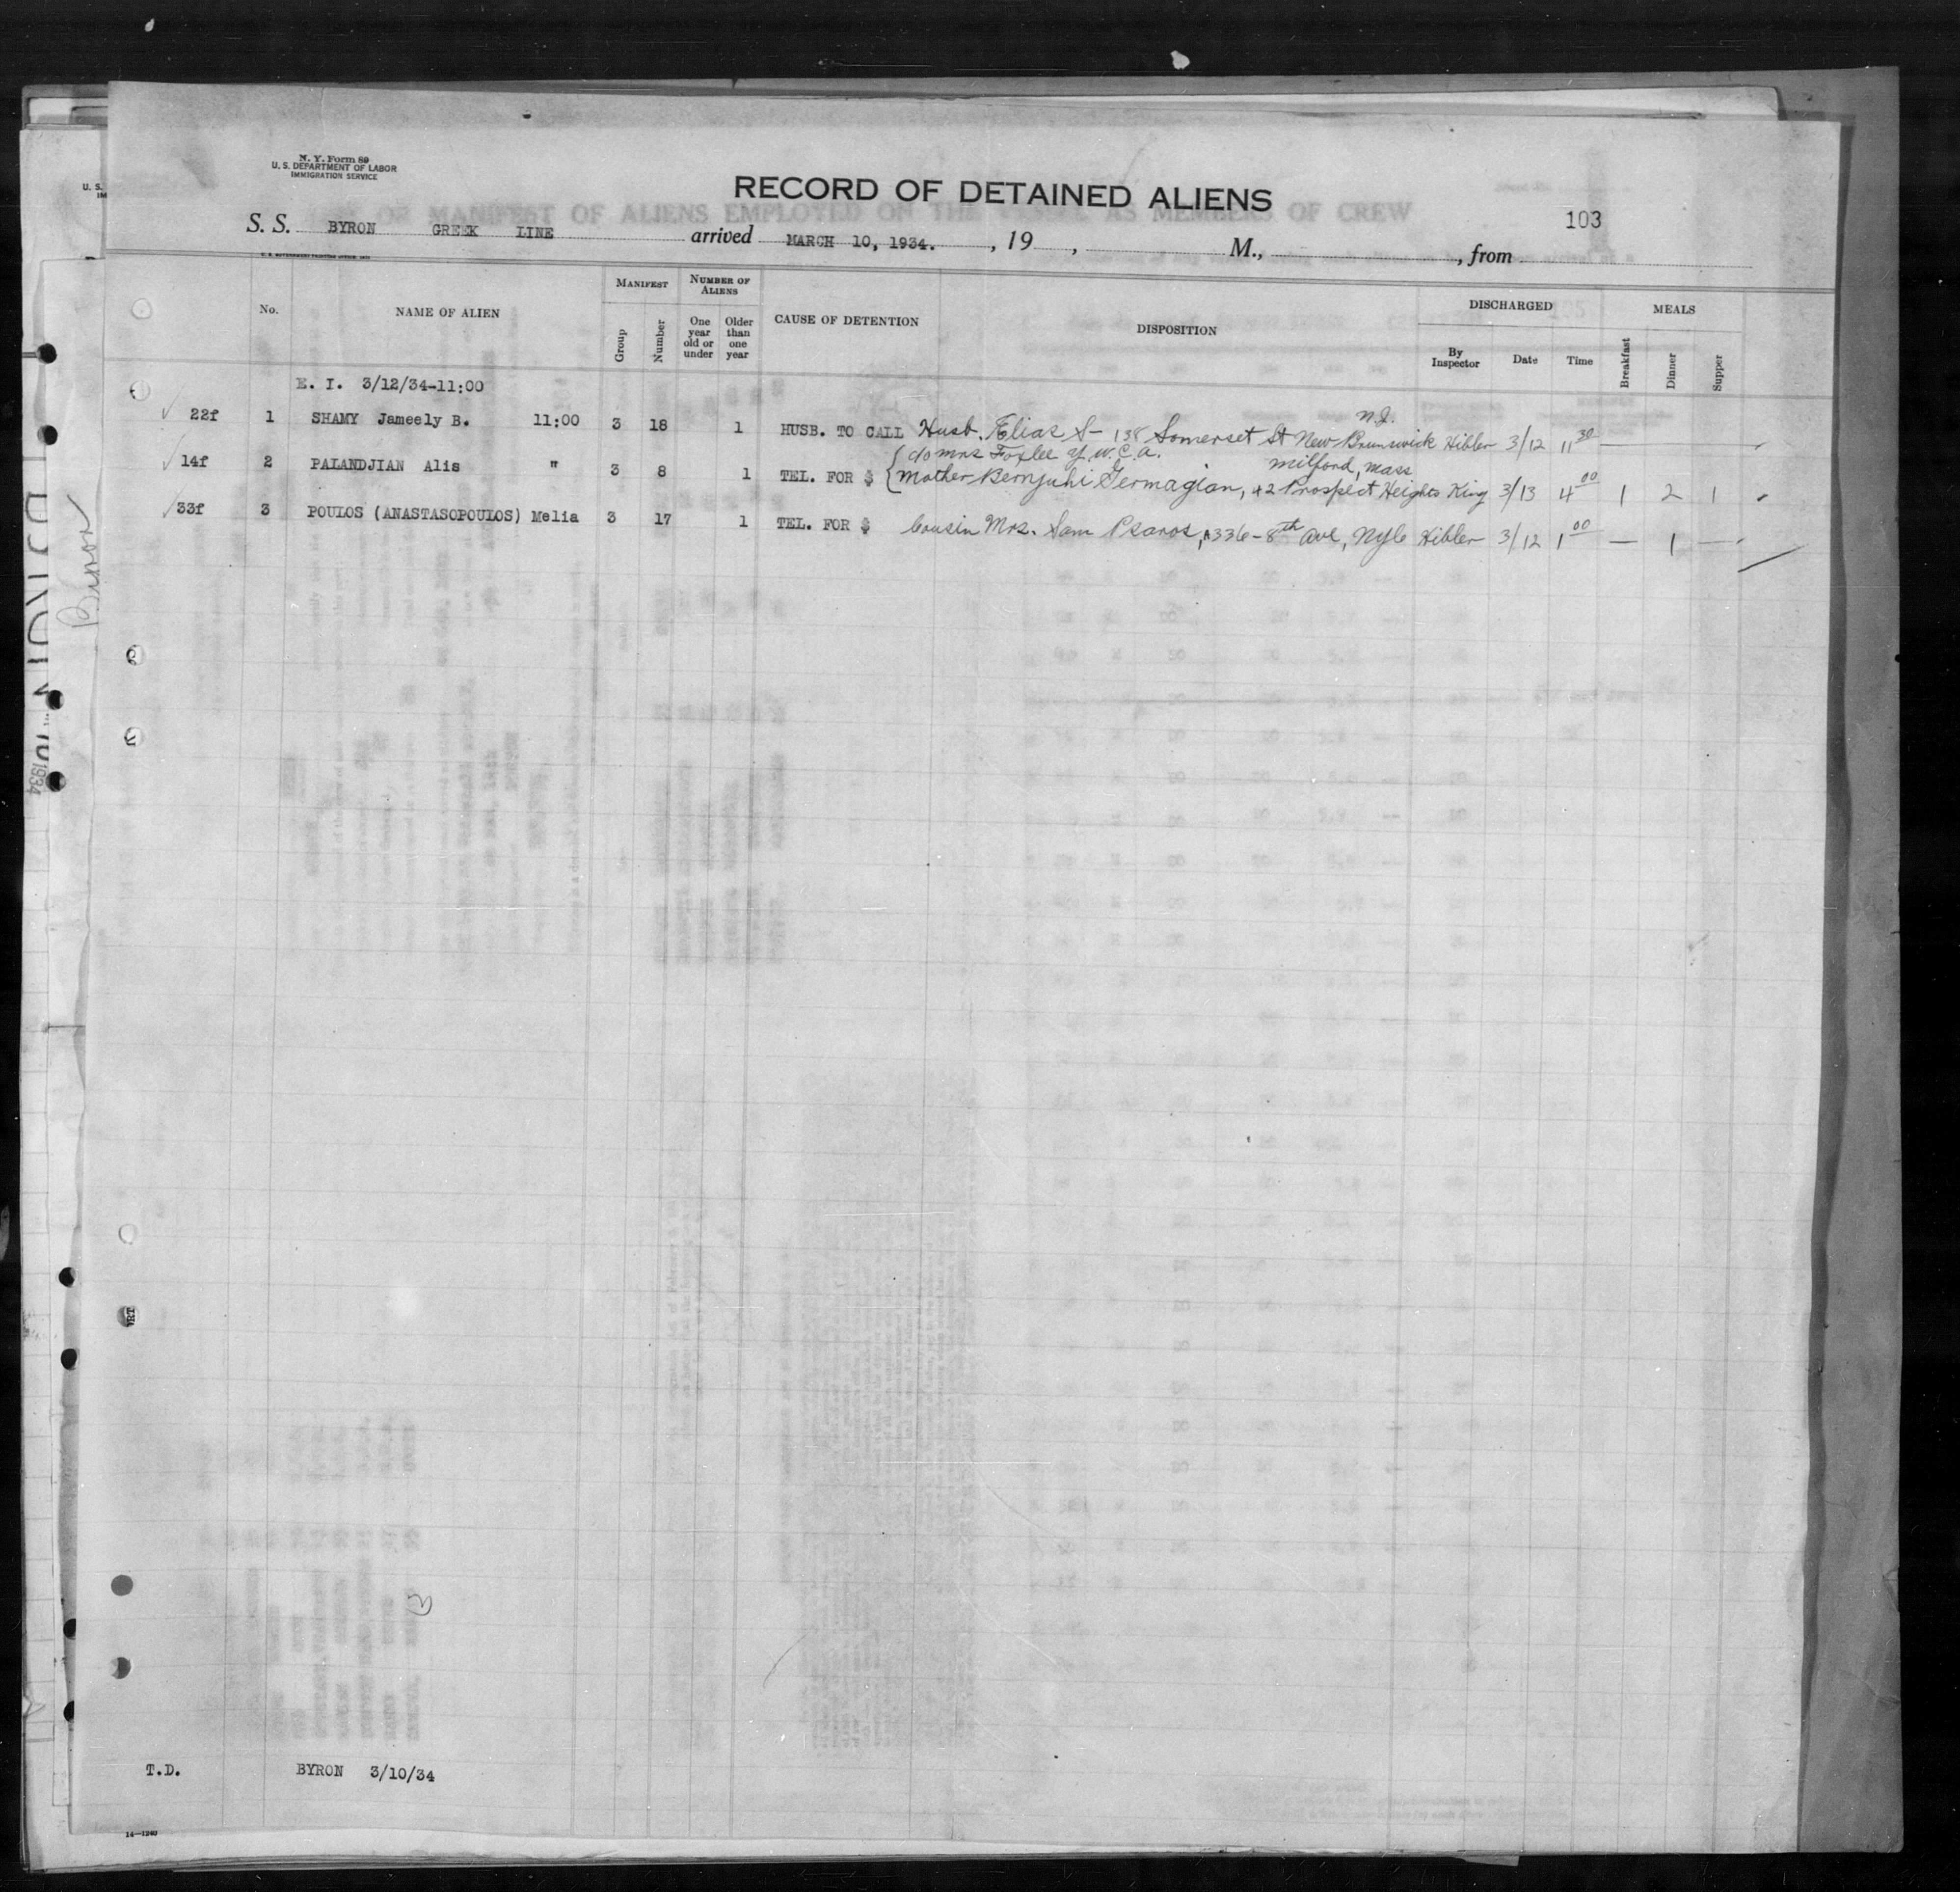 N. Y. Form 89
U. S. DEPARTMENT OF LABOR
IMMIGRATION SERVICE
RECORD OF DETAINED ALIENS
103
S. S. BYRON GREEK LINE arrived MARCH 10, 1934. , 19 , M., , from
No. NAME OF ALIEN MANIFEST Group Number NUMBER OF ALIENS One year old or under Older than one year CAUSE OF DETENTION DISPOSITION DISCHARGED By Inspector Date Time MEALS Breakfast Dinner Supper
E. I. 3/12/34-11:00
N.J.
22f 1 SHAMY Jameely B. 11:00 3 18 1 HUSB. TO CALL Husb. Elias S- 138 Somerset St New Brunswick Hibler 3/12 11 30 —
c/o Mrs Foxlee Y.W.C.A. Milford, Mass
14f 2 PALANDJIAN Alis " 3 8 1 TEL. FOR $ Mother Bernjuhi Germagian, 42 Prospect Heights King 3/13 4 00 1 2 1
33f 3 POULOS (ANASTASOPOULOS) Melia 3 17 1 TEL. FOR $ Cousin Mrs. Sam Psaros, 336-8th Ave, NYC Hibler 3/12 1 00 — 1 —
Byron
1934
T.D. BYRON 3/10/34
14—1240